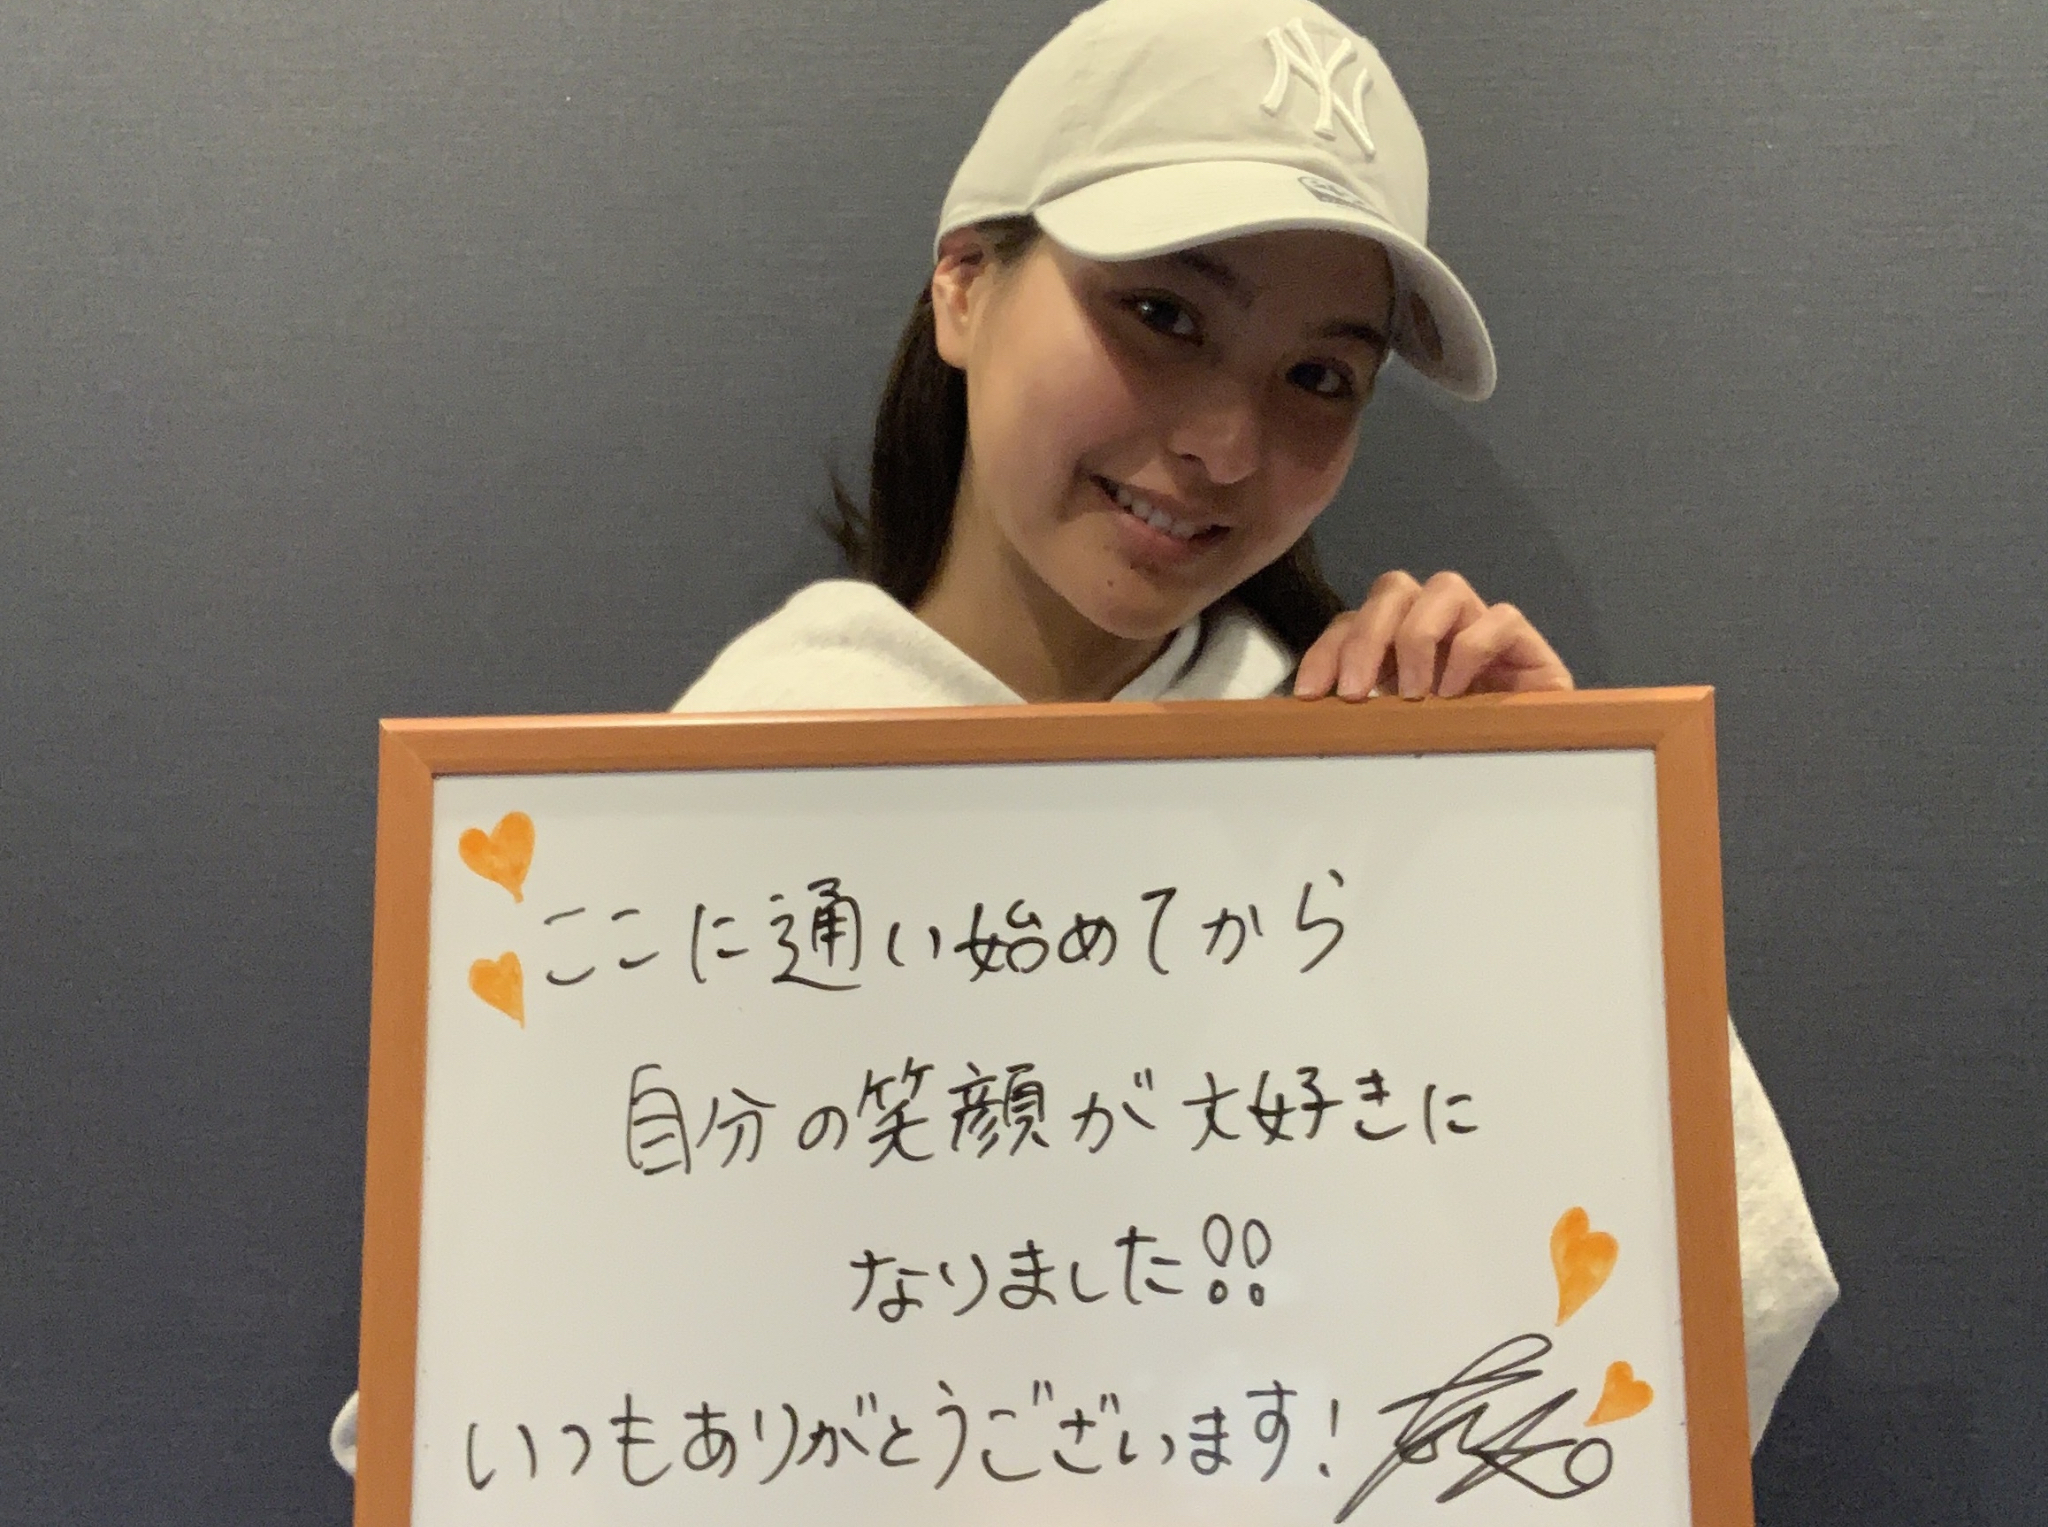 NY
ここに通い始めてから
自分の笑顔が大好きに
なりました!!
いつもありがとうございます!